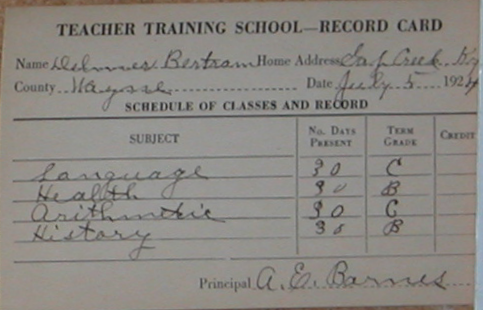 TEACHER TRAINING SCHOOL—RECORD CARD
Name Delmus Bertram Home Address Gap Creek Ky
County Wayne Date July 5 1924
SCHEDULE OF CLASSES AND RECORD
SUBJECT No. Days Present Term Grade Credit
Language 30 C
Health 30 B
Arithmetic 30 C
History 30 B
Principal A. E. Barnes